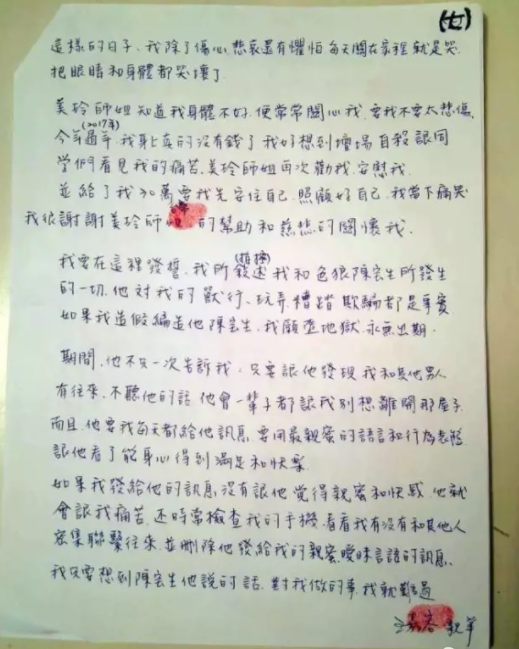 (七)
這樣的日子,我除了傷心,悲哀還有懼怕每天關在家裡就是哭,
把眼睛和身體都哭壞了
美玲師姐知道我身體不好,便常常關心我,要我不要太悲傷,
(2017年)
今年過年,我身上真的沒有錢了我好想到壇場自殺讓同
學們看見我的痛苦,美玲師姐再次勸我,安慰我,
並給了我 萬要我先安住自己,照顧好自己,我當下痛哭
我很謝謝美玲師 的幫助和慈悲的關懷我,
我要在這裡發誓,我所敘述我和色狼陳宏生所發生
的一切,他對我的獸行、玩弄、糟踏欺騙都是事實
如果我造假編造他陳宏生,我願墮地獄,永無出期,
期間,他不只一次告訴我,只要讓他發現,我和其他男人
有往來,不聽他的話,他會一輩子都讓我別想離開那屋子,
而且,他要我每天都給他訊息,要用最親蜜的語言和行為
讓他看了能身心得到滿足和快樂
如果我發給他的訊息,沒有讓他覺得親密和快感,他就
會讓我痛苦,还時常檢查我的手機,看看我有沒有和其他人
密集聯繫往來,並刪除他發給我的親蜜,曖昧言語的訊息,
我只要想到陳宏生他說的話,對我做的事,我就難過
親筆